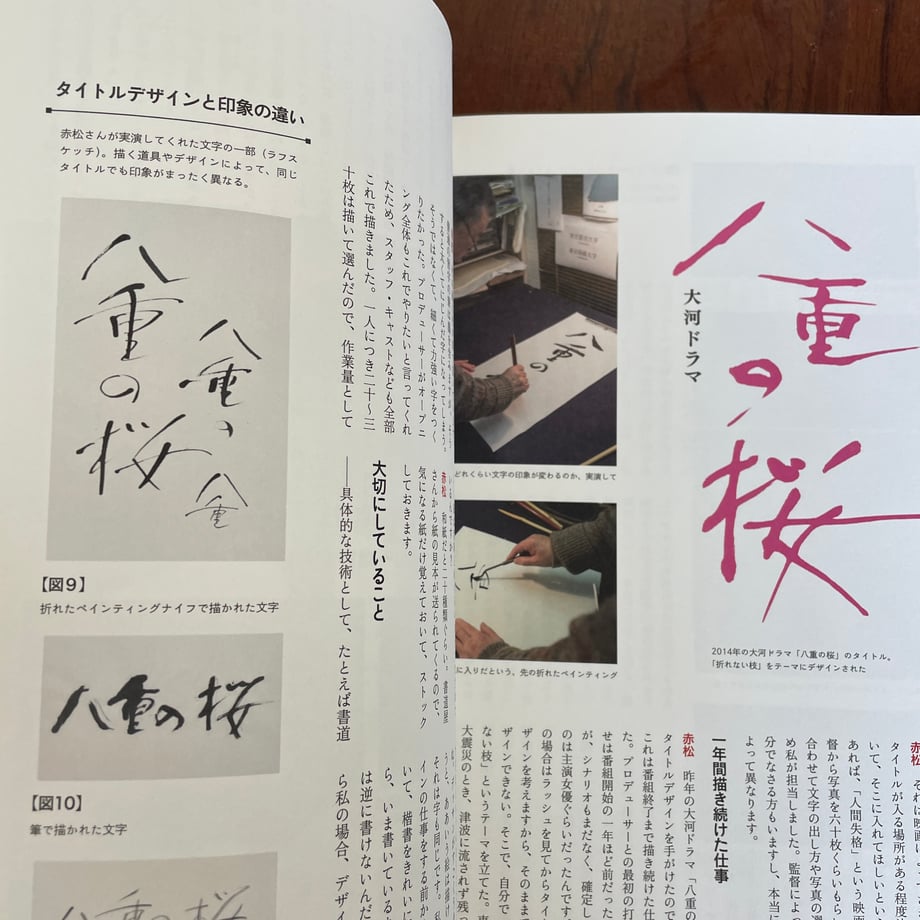 タイトルデザインと印象の違い
赤松さんが実演してくれた文字の一部（ラフス
ケッチ）。描く道具やデザインによって、同じ
タイトルでも印象がまったく異なる。
八重の桜
八重
八重
【図9】
折れたペインティングナイフで描かれた文字
八重の桜
【図10】
筆で描かれた文字
すると太くてにじんだ字になってしまう。
そうではなくて、細くて力強い字をつく
りたかった。プロデューサーがオープニ
ング全体もこれでやりたいと言ってくれ
たため、スタッフ・キャストなども全部
これで描きました。一人につき二十〜三
十枚は描いて選んだので、作業量として
赤松　和紙だと二十種類ぐらい。書道屋
さんから紙の見本が送られてくるので、
気になる紙だけ覚えておいて、ストック
しておきます。
大切にしていること
――具体的な技術として、たとえば書道
それは字も同じです。
インの仕事をする前か
いて、楷書をきれいに
ら、いま書いている
は逆に書けないんだ
ら私の場合、デザイ
八重の桜
大河ドラマ
2014年の大河ドラマ「八重の桜」のタイトル。
「折れない枝」をテーマにデザインされた
八重の
どれくらい文字の印象が変わるのか、実演して
に入りだという、先の折れたペインティング
赤松　それは映画に
タイトルが入る場所がある程度
いて、そこに入れてほしいとい
あれば、「人間失格」という映
督から写真を六十枚くらいもら
合わせて文字の出し方や写真の選
め私が担当しました。監督によ
分でなさる方もいますし、本当に
よって異なります。
一年間描き続けた仕事
赤松　昨年の大河ドラマ「八重の
タイトルデザインを手がけたので
これは番組終了まで描き続けた仕
た。プロデューサーとの最初の打
せは番組開始の一年ほど前だった
が、シナリオもまだなく、確定し
のは主演女優ぐらいだったんです。
の場合はラッシュを見てからタイ
ザインを考えますから、そのまま
ザインできない。そこで、自分で
ない枝」というテーマを立てた。東
大震災のとき、津波に流されず残っ